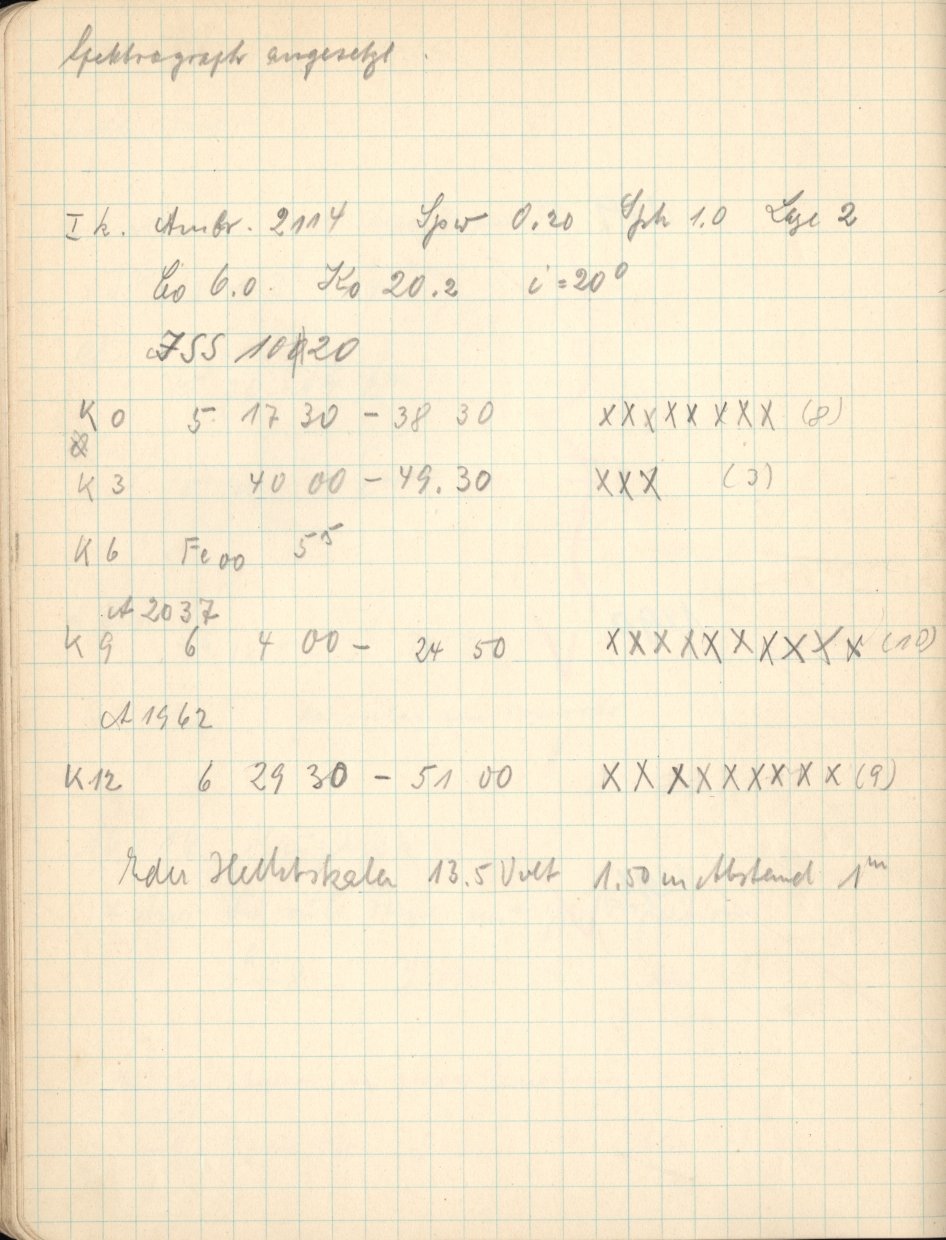 Spektrograph angesetzt.
I k. Ambr. 2114 Spw 0.20 Sph 1.0 Lage 2
Co 6.0 Ko 20.2 i = 20°
JSS 10 20
K 0 5 17 30 – 38 30 xxxxxxxx (8)
K 3 40 00 – 49.30 xxx (3)
K 6 Fe 00 5 5
A 2037
K 9 6 4 00 – 24 50 xxxxxxxxxx (10)
A 1962
K12 6 29 30 – 51 00 xxxxxxxxx (9)
Eder 13.5 Volt 1.50 m Abstand 1 m